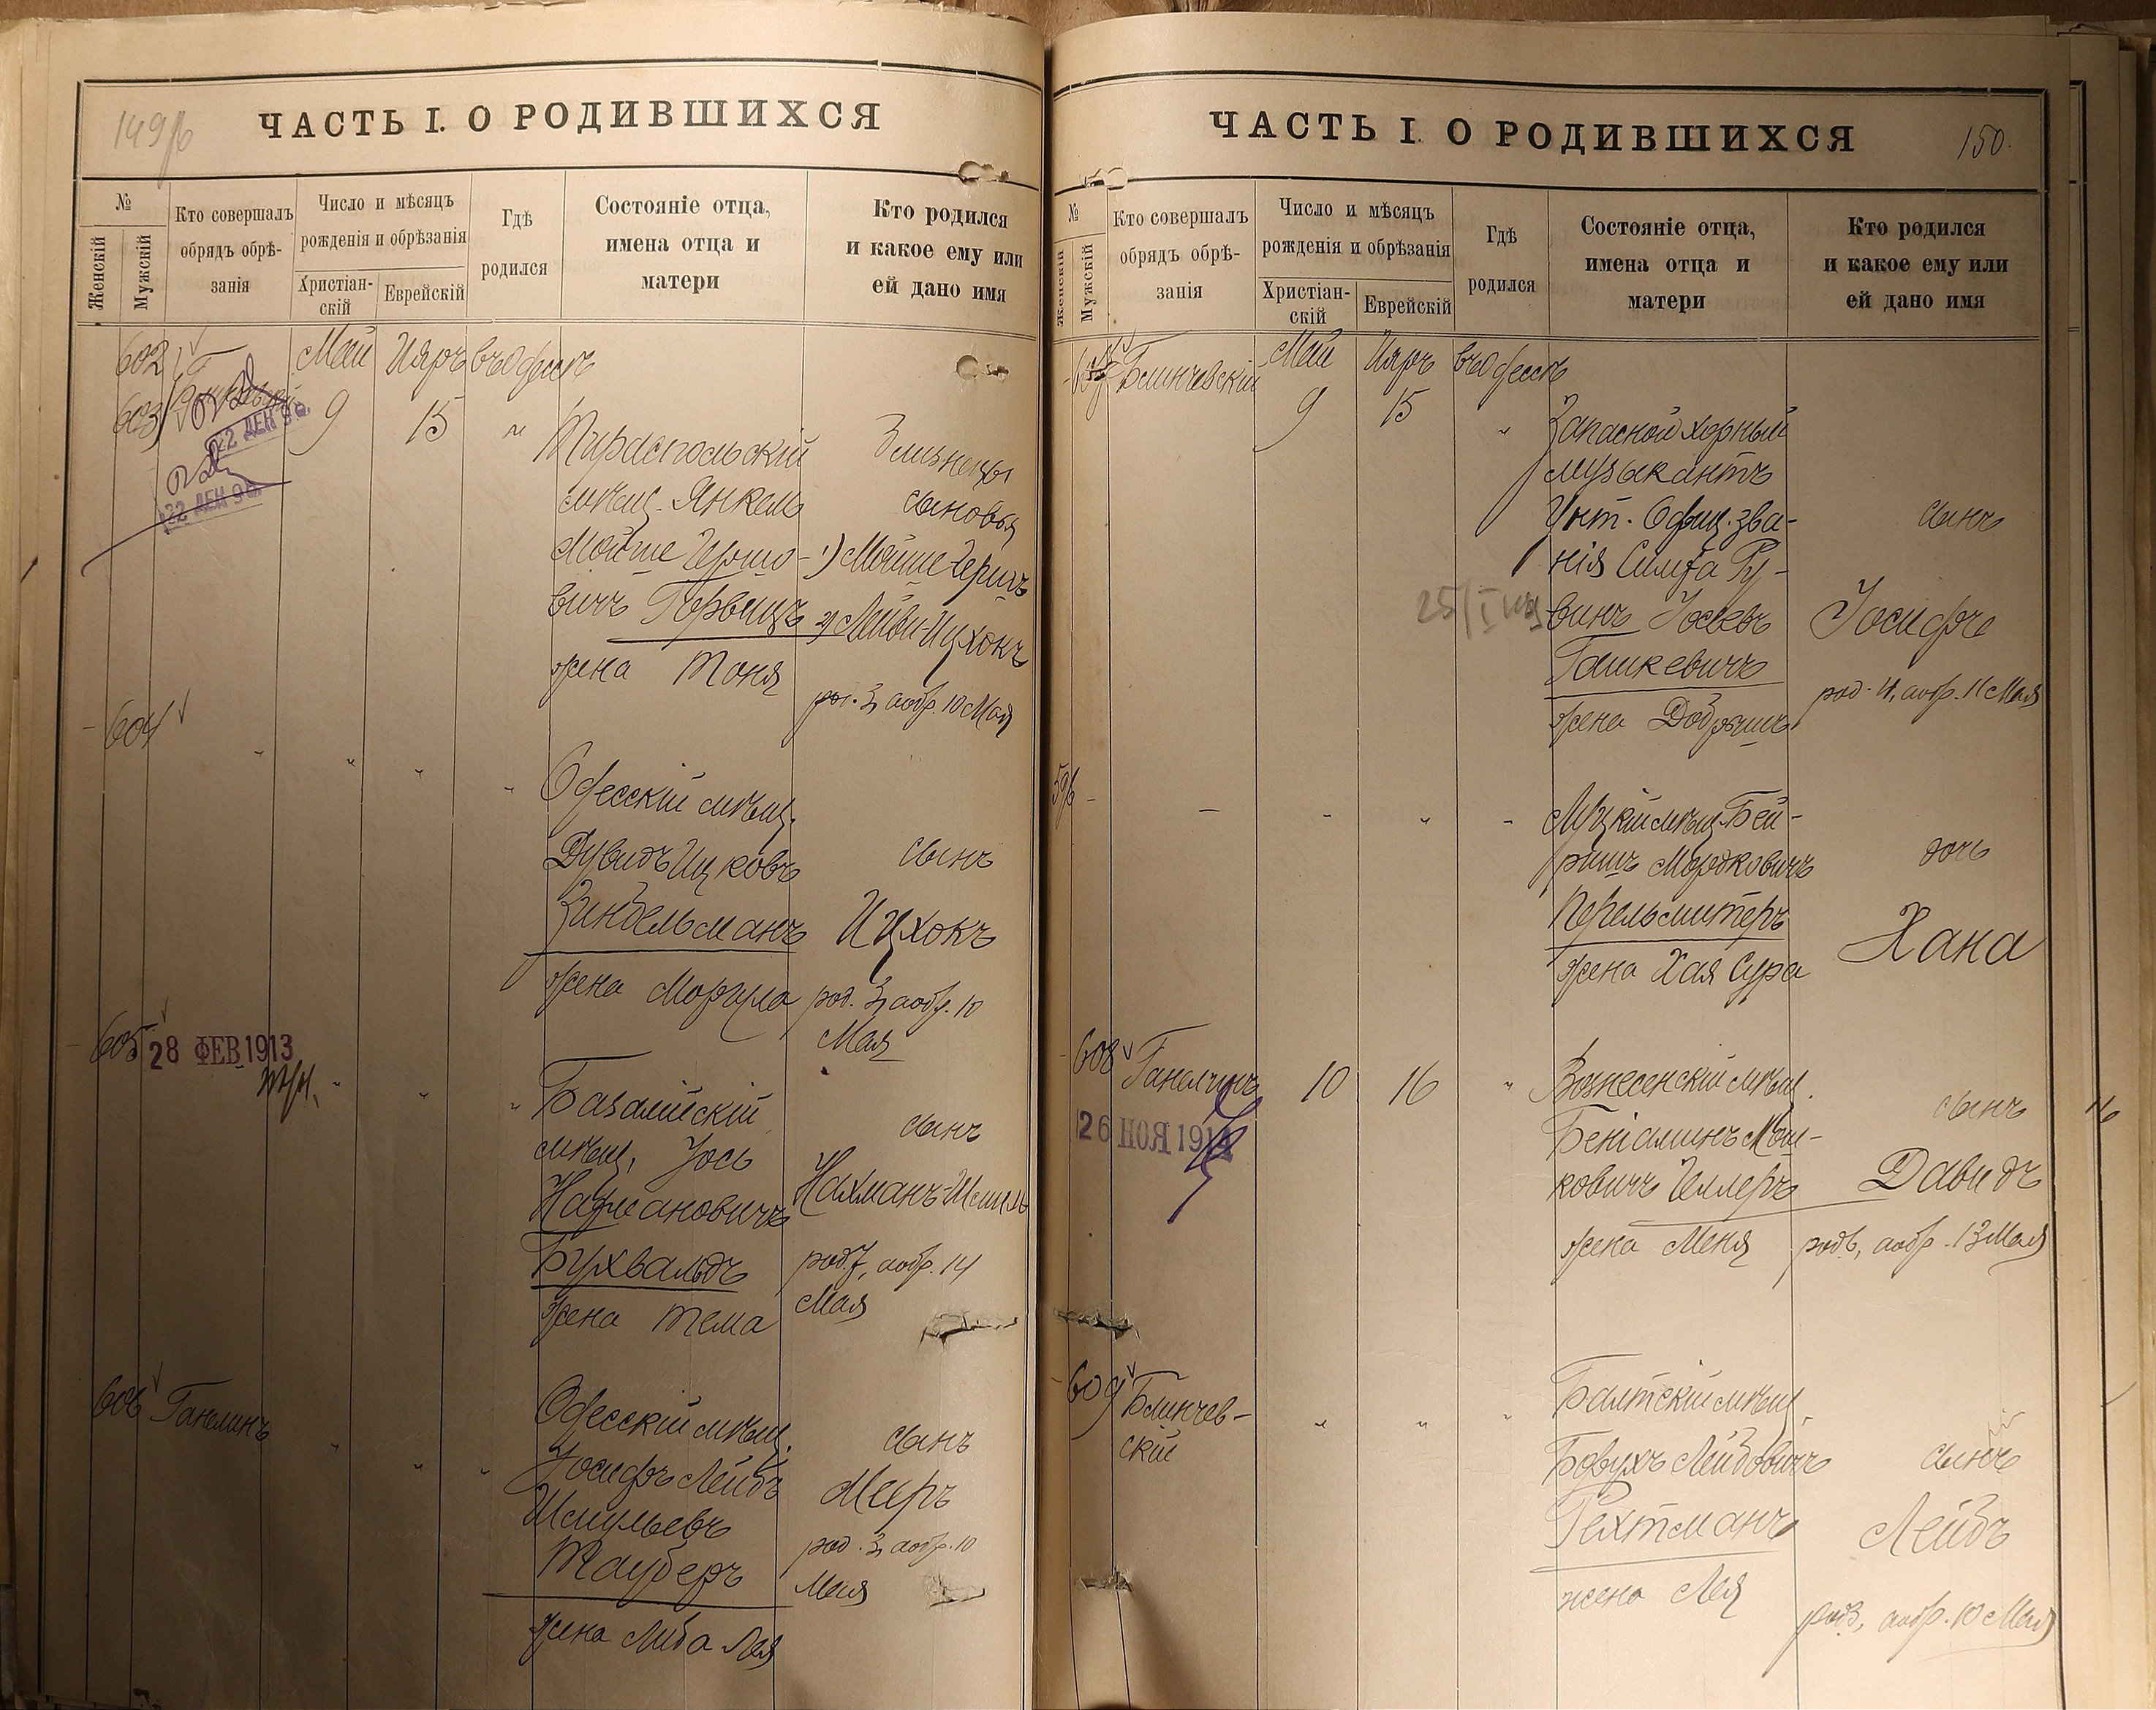 149об
ЧАСТЬ I. О РОДИВШИХСЯ
№
Женскій
Мужскій
Кто совершалъ
обрядъ обрѣ-
занія
Число и мѣсяцъ
рожденія и обрѣзанія
Христіан-
скій
Еврейскій
Гдѣ
родился
Состояніе отца,
имена отца и
матери
Кто родился
и какое ему или
ей дано имя
602
603
22 ДЕК 9
22 ДЕК 9
Май
9
Ияръ
15
въ Одессѣ
"
Тираспольскій
мѣщ. Янкель
Мойше Гершо-
вичъ Горвицъ
жена Тоня
Близнецы
сыновья
1) Мойше-Гершъ
2) Лейви-Ицхокъ
род. 3, а обр. 10 Мая
604
"
"
"
"
Одесскій мѣщ.
Дувидъ Ицковъ
Зиндельманъ
жена
сынъ
Ицхокъ
род. 3, а обр. 10
Мая
605
28 ФЕВ 1913
"
"
"
Базалійскій
мѣщ. Іось
Нахмановичъ
Бухвальдъ
жена Тема
сынъ
Нахманъ-Шмиль
род. 7, а обр. 14
Мая
606
Ганелинъ
"
"
"
Одесскій мѣщ.
Іосифъ Лейбъ
Шмульевъ
Тауберъ
жена Либа Лея
сынъ
Меиръ
род. 3, а обр. 10
Мая
ЧАСТЬ I. О РОДИВШИХСЯ
150.
№
Женскій
Мужскій
Кто совершалъ
обрядъ обрѣ-
занія
Число и мѣсяцъ
рожденія и обрѣзанія
Христіан-
скій
Еврейскій
Гдѣ
родился
Состояніе отца,
имена отца и
матери
Кто родился
и какое ему или
ей дано имя
607
Блинчевскій
Май
9
Ияръ
15
въ Одессѣ
"
Запасной хорный
музыкантъ
Унт. Офиц. зва-
нія Симха Ру-
винъ Іосевъ
Гашкевичъ
жена Добрышъ
сынъ
Іосифъ
род. 4, а обр. 11 Мая
596
-
-
"
"
"
Луцкій мѣщ. Бей-
ришъ Мордковичъ
Перельмитеръ
жена Хая Сура
дочь
Хана
608
Ганелинъ
26 НОЯ 191
10
16
"
Вознесенскій мѣщ.
Беніаминъ Мош-
ковичъ Геллеръ
жена Меня
сынъ
Давидъ
род. 6, а обр. 13 Мая
609
Блинчев-
скій
"
"
"
Балтскій мѣщ.
Борухъ Лейбовичъ
Рехтманъ
жена Лея
сынъ
Лейбъ
род. 3, а обр. 10 Мая